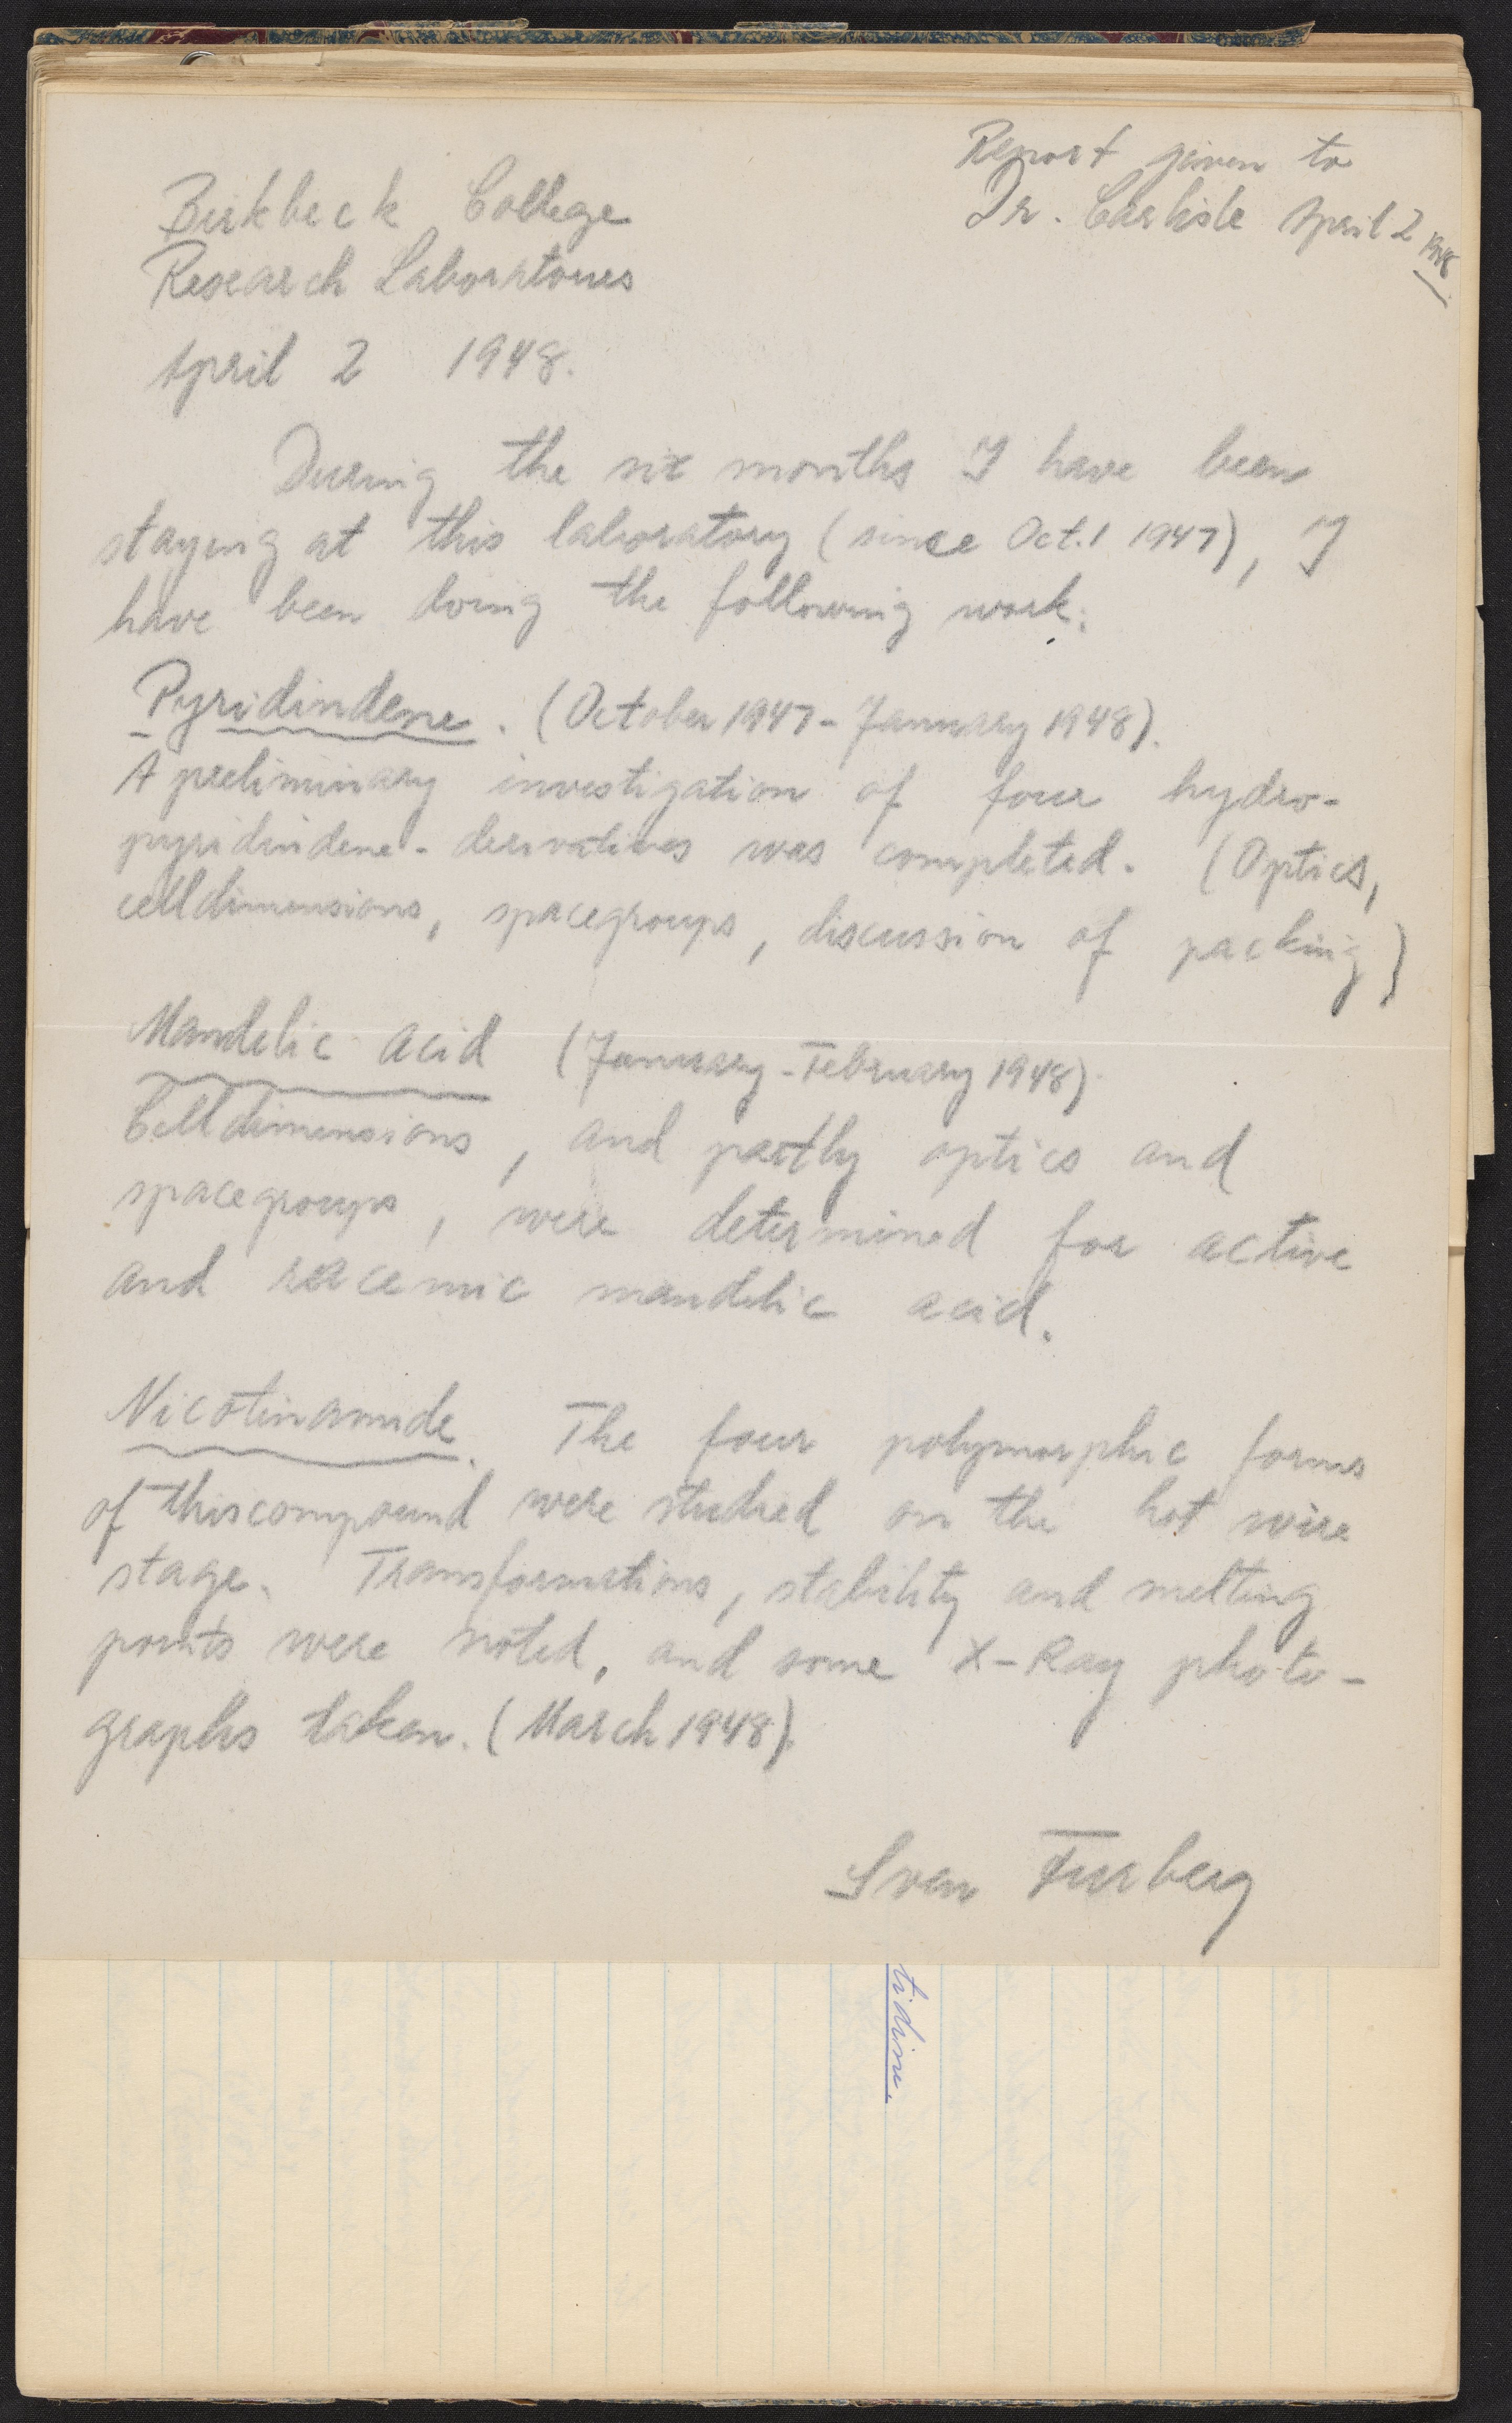 Report given to
Dr. Carlisle April 2 1948
Birkbeck College
Research Laboratories
April 2 1948.
During the six months I have been
staying at this laboratory (since Oct. 1 1947), I
have been doing the following work:
Pyridindene. (October 1947 - January 1948).
A preliminary investigation of four hydro-
pyridindene-derivatives was completed. (Optics,
celldimensions, spacegroups, discussion of packing)
Mandelic acid (January - February 1948).
Celldimensions, and partly optics and
spacegroups, were determined for active
and racemic mandelic acid.
Nicotinamide. The four polymorphic forms
of this compound were studied on the hot wire
stage. Transformations, stability and melting
points were noted, and some X-Ray photo-
graphs taken. (March 1948).
Sven Furberg
tidine.